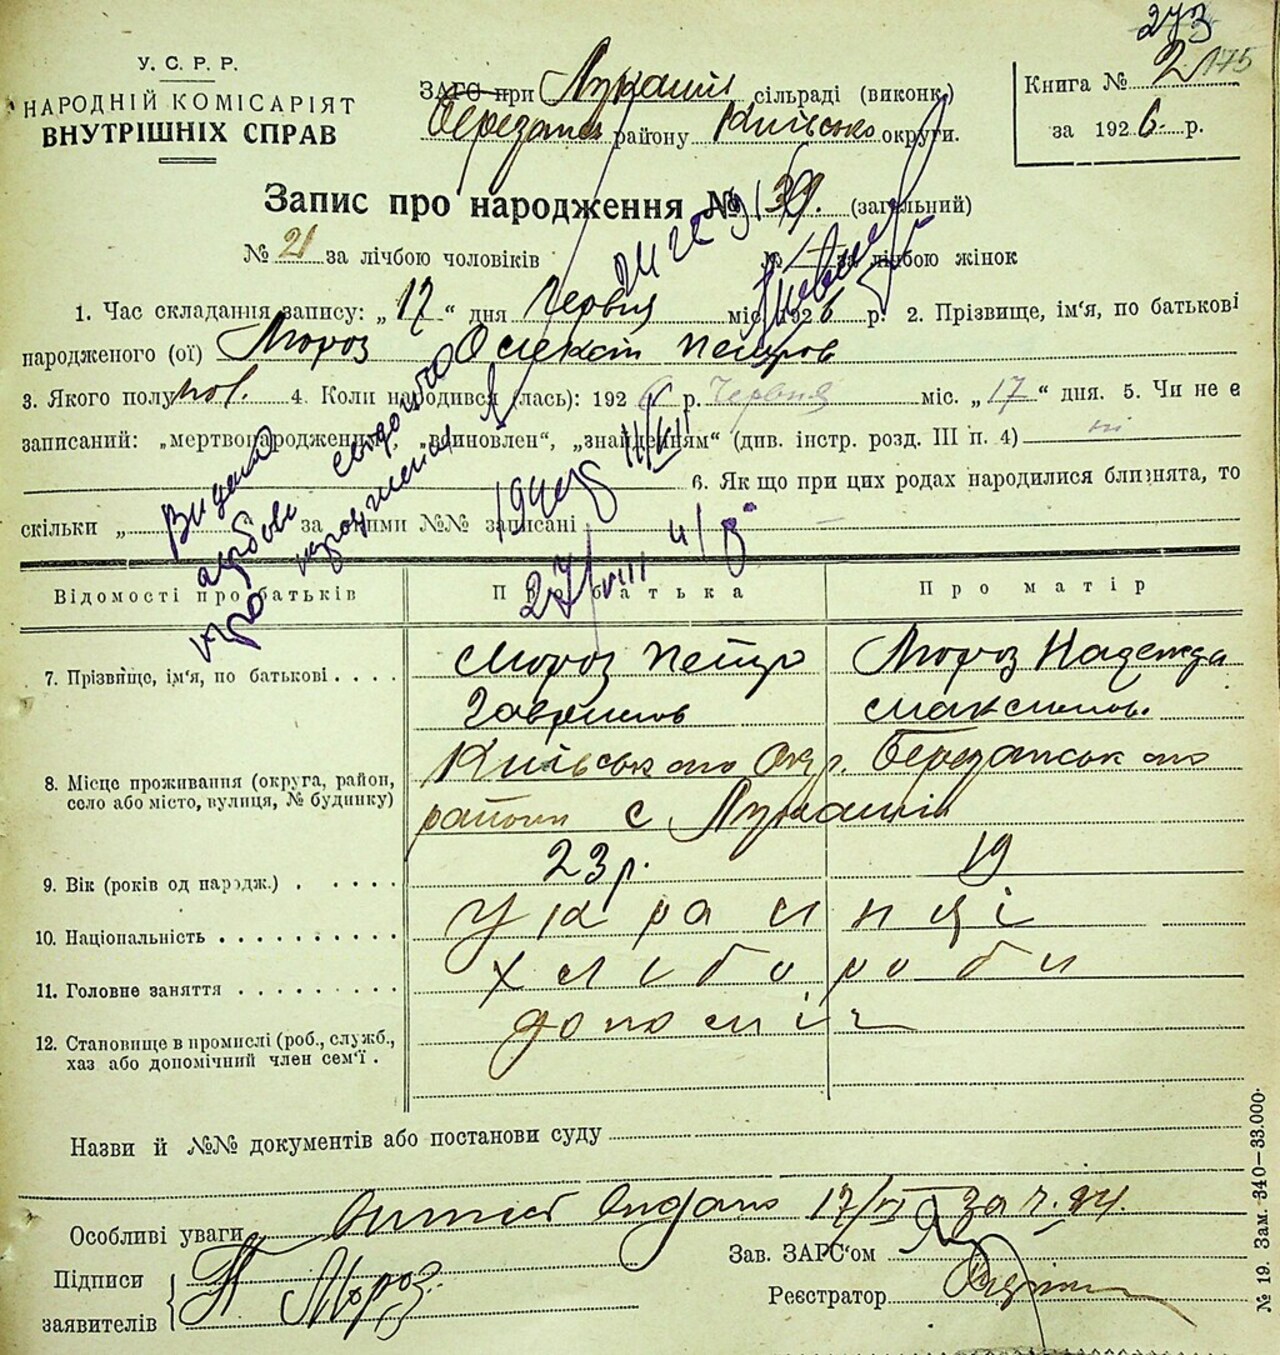 273
175
У. С. Р. Р.
НАРОДНІЙ КОМІСАРІЯТ
ВНУТРІШНІХ СПРАВ
ЗАГС при Лукаші сільраді (виконк.)
району Київсько округи.
Книга № 2
за 1926 р.
Запис про народження № 39. (загальний)
№ 21 за лічбою чоловіків № за лічбою жінок
1. Час складання запису: „17“ дня Червня міс. 1926 р. 2. Прізвище, ім'я, по батькові
народженого (ої) Мороз Олексій Петров
3. Якого полу чол. 4. Коли народився (лась): 1926 р. Червня міс. „17“ дня. 5. Чи не є
записаний: „мертвонародженим“, „вдиновлен“, „знайденям“ (див. інстр. розд. III п. 4) ні
6. Як що при цих родах народилися близнята, то
скільки „ за якими №№ записані
Видано
про
27/VIII
Відомості про батьків Про батька Про матір
7. Прізвище, ім'я, по батькові . . . . Мороз Петро Мороз Надежда
Гаврилов Максимов.
8. Місце проживання (округа, район, Київського Окр. Березанського
село або місто, вулиця, № будинку) района с Лукаші
9. Вік (років од народж.) . . . . . 23 р. 19
10. Національність . . . . . . . . . . Українці
11. Головне заняття . . . . . . . . . Хлібороби
12. Становище в промислі (роб., служб., допоміч
хаз або допомічний член сем'ї .
Назви й №№ документів або постанови суду
Особливі уваги 17/VI за № 24.
Зав. ЗАГС'ом
Підписи
заявителів П Мороз
Реєстратор
№ 19. Зам. 340—33.000.